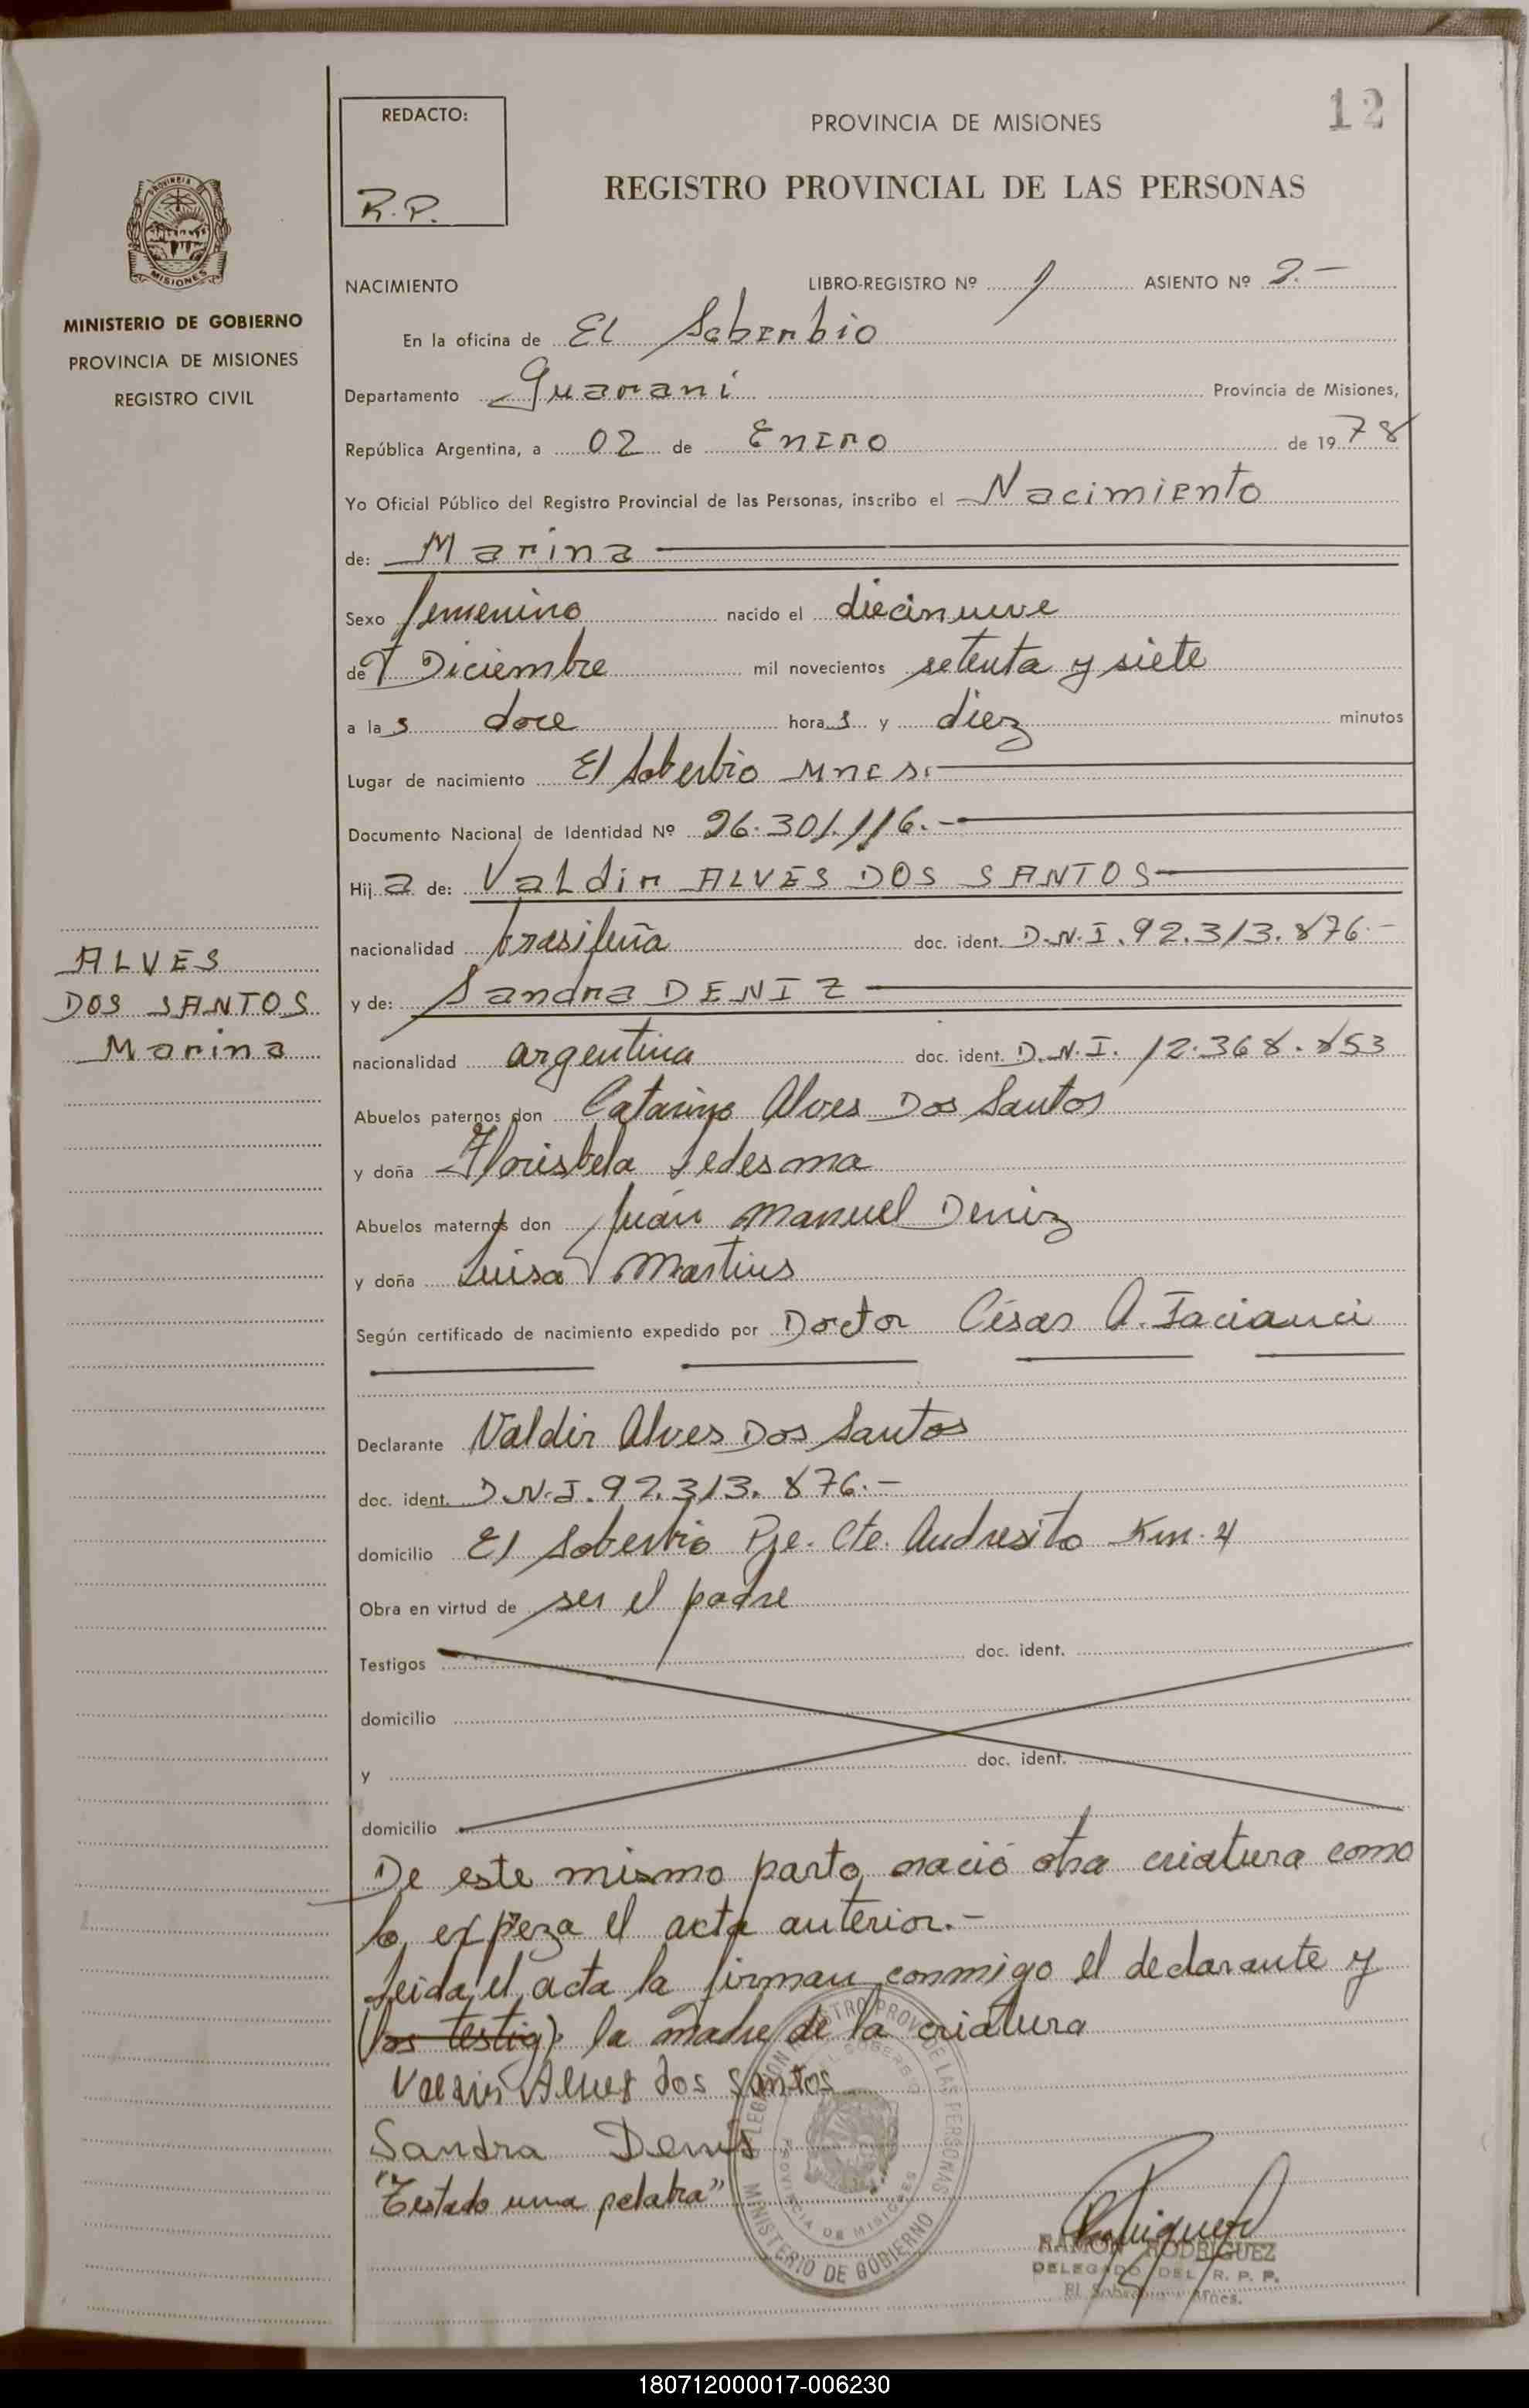 REDACTO:
R.P.
PROVINCIA DE MISIONES
12
REGISTRO PROVINCIAL DE LAS PERSONAS
PROVINCIA DE
MISIONES
MINISTERIO DE GOBIERNO
PROVINCIA DE MISIONES
REGISTRO CIVIL
NACIMIENTO LIBRO-REGISTRO Nº 1 ASIENTO Nº 2.-
En la oficina de El Soberbio
Departamento Guarani Provincia de Misiones,
República Argentina, a 02 de Enero de 1978
Yo Oficial Público del Registro Provincial de las Personas, inscribo el Nacimiento
de: Marina
Sexo femenino nacido el diecinueve
de Diciembre mil novecientos setenta y siete
a las doce horas y diez minutos
Lugar de nacimiento El Soberbio Mnes.
Documento Nacional de Identidad Nº 26.301.116.-
Hija de: Valdir ALVES DOS SANTOS
nacionalidad brasileña doc. ident. D.N.I. 92.313.876.-
ALVES
DOS SANTOS
Marina
y de: Sandra DENIZ
nacionalidad argentina doc. ident. D.N.I. 12.368.853
Abuelos paternos don Catarino Alves Dos Santos
y doña Florisbela Ledesma
Abuelos maternos don Juán Manuel Deniz
y doña Luisa Martins
Según certificado de nacimiento expedido por Doctor César A.
Declarante Valdir Alves Dos Santos
doc. ident. D.N.I. 92.313.876.-
domicilio El Soberbio Pje. Cte. Andresito Km. 4
Obra en virtud de ser el padre
Testigos doc. ident.
domicilio
y doc. ident.
domicilio
De este mismo parto nació otra criatura como
lo expreza el acta anterior.-
Leida el acta la firman conmigo el declarante y
(los testig) la madre de la criatura
Valdir Alves dos Santos
Sandra Denis
"Testado una palabra"
DELEGACION REGISTRO PROV. DE LAS PERSONAS
EL SOBERBIO
PROVINCIA DE MISIONES
MINISTERIO DE GOBIERNO
Rodriguez
RAMON RODRIGUEZ
DELEGADO DEL R. P. P.
El Soberbio Mnes.
180712000017-006230